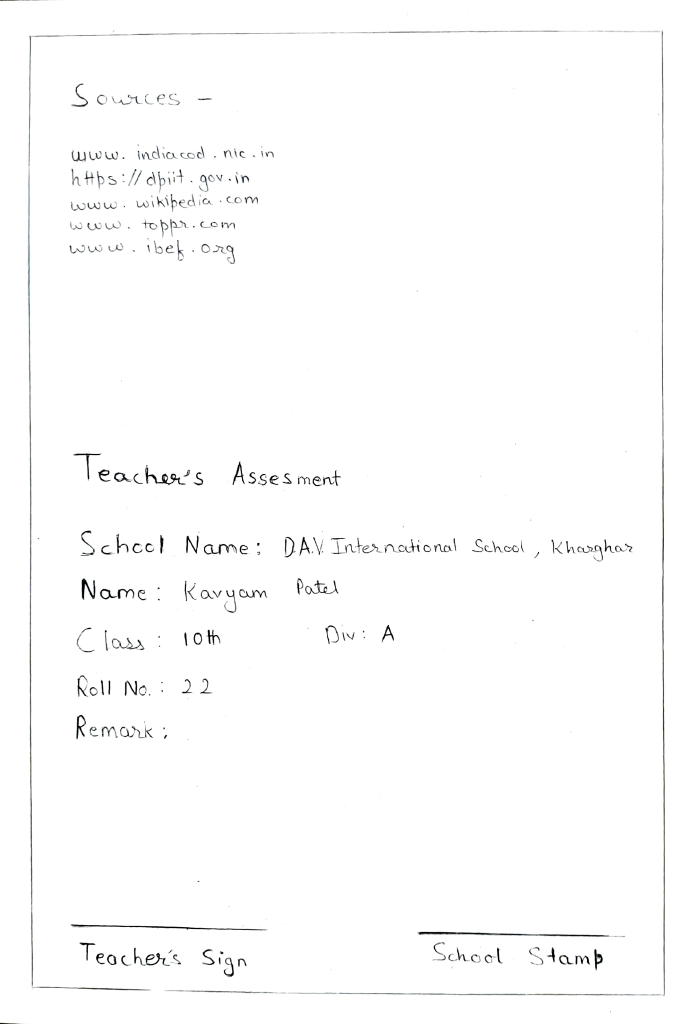 Sources -
www. indiacod . nic . in
https://dpiit. gov.in
www. wikipedia .com
www. toppr.com
www. ibef. org
Teacher's Assesment
School Name: D.A.V. International School, Kharghar
Name: Kavyam Patel
Class: 10th Div: A
Roll No.: 22
Remark:
Teacher's Sign School Stamp